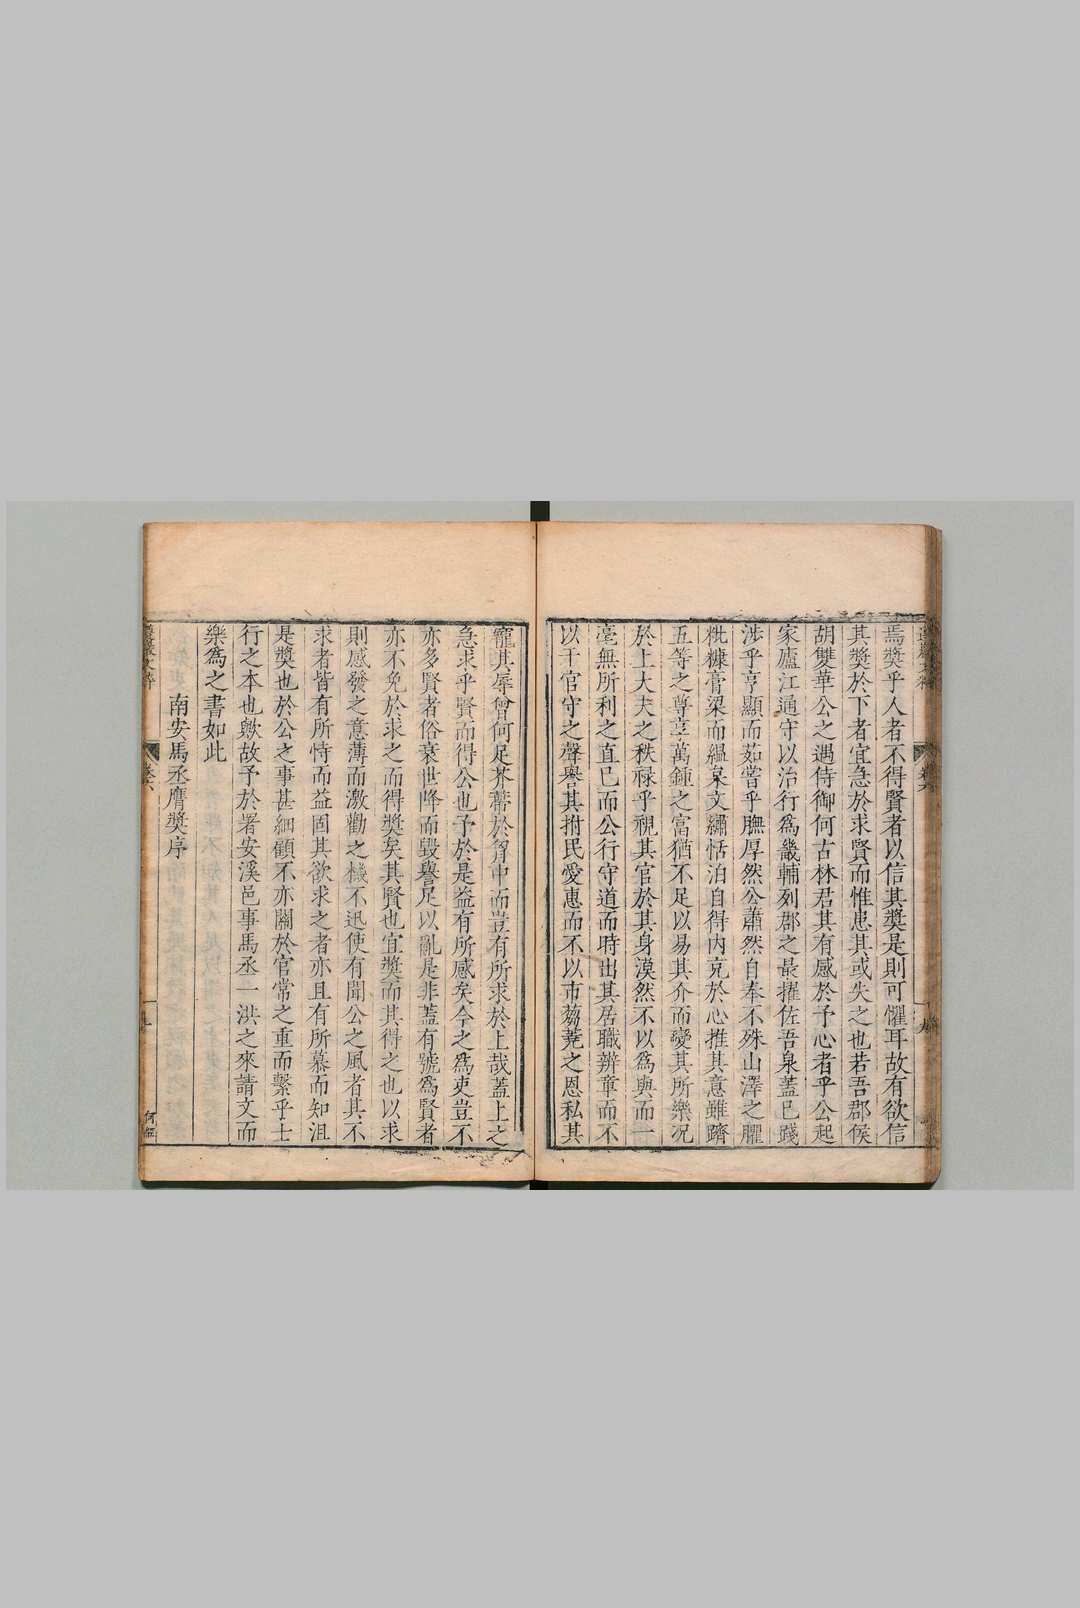 焉奬乎人者不得賢者以信其奬是則可懼耳故有欲信
其奬於下者宜急於求賢而惟患其或失之也若吾郡侯
胡雙華公之遇侍御何古林君其有感於予心者乎公起
家廬江通守以治行為畿輔列郡之最擢佐吾泉蓋已踐
涉乎亨顯而茹嘗乎膴厚然公蕭然自奉不殊山澤之臞
粃糠膏粱而縕枲文繡恬泊自得内充於心推其意雖躋
五等之尊享萬鍾之富猶不足以易其介而變其所樂况
於上大夫之秩禄乎視其官於其身漠然不以為與而一
毫無所利之直已而公行守道而時出其居職辨章而不
以干官守之聲譽其拊民愛惠而不以市蒭蕘之恩私其
寵其辱曾何足芥蔕於胷中而豈有所求於上哉蓋上之
急求乎賢而得公也予於是益有所感矣今之為吏豈不
亦多賢者俗衰世降而毀譽足以亂是非蓋有號為賢者
亦不免於求之而得奬矣其賢也宜奬而其得之也以求
則感發之意薄而激勸之機不迅使有聞公之風者其不
求者皆有所恃而益固其欲求之者亦且有所慕而知沮
是奬也於公之事甚細顧不亦關於官常之重而繫乎士
行之本也歟故予於署安溪邑事馬丞一洪之來請文而
樂為之書如此
南安馬丞膺奬序
卷六
九